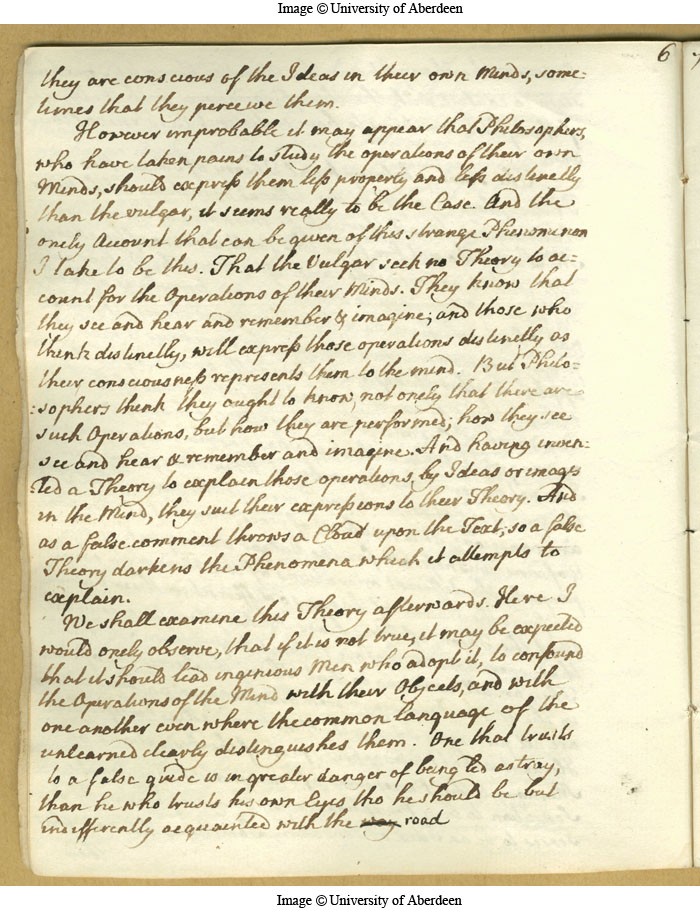 Image © University of Aberdeen
6
they are conscious of the Ideas in their own Minds, some:
times that they perceive them.
However improbable it may appear that Philosophers,
who have taken pains to study the operations of their own
Minds, should express them less properly and less distinctly
than the vulgar, it seems really to be the Case And the
onely Account that can be given of this strange Phenomenon
I take to be this. That the Vulgar seek no Theory to ac:
count for the Operations of their Minds. They know that
they see and hear and remember & imagine; and those who
think distinctly, will express those operations distinctly as
their consciousness represents them to the mind. But Philo:
:sophers think they ought to know, not onely that there are
such Operations, but how they are performed; how they see
see and hear & remember and imagine. And having inven:
:ted a Theory to explain those operations, by Ideas or images
in the Mind, they suit their expressions to their Theory. And
as a false comment throws a Cloud upon the Text, so a false
Theory darkens the Phenomena which it attempts to
explain.
We shall examine this Theory afterwards. Here I
would onely observe, that if it is not true, it may be expected
that it should lead ingenious Men who adopt it, to confound
the Operations of the Mind with their Objects, and with
one another even where the common language of the
unlearned clearly distinguishes them. One that trusts
to a false guide is in greater danger of being led astray,
than he who trusts his own Eyes tho he should be but
indifferently acquainted with the way road
Image © University of Aberdeen